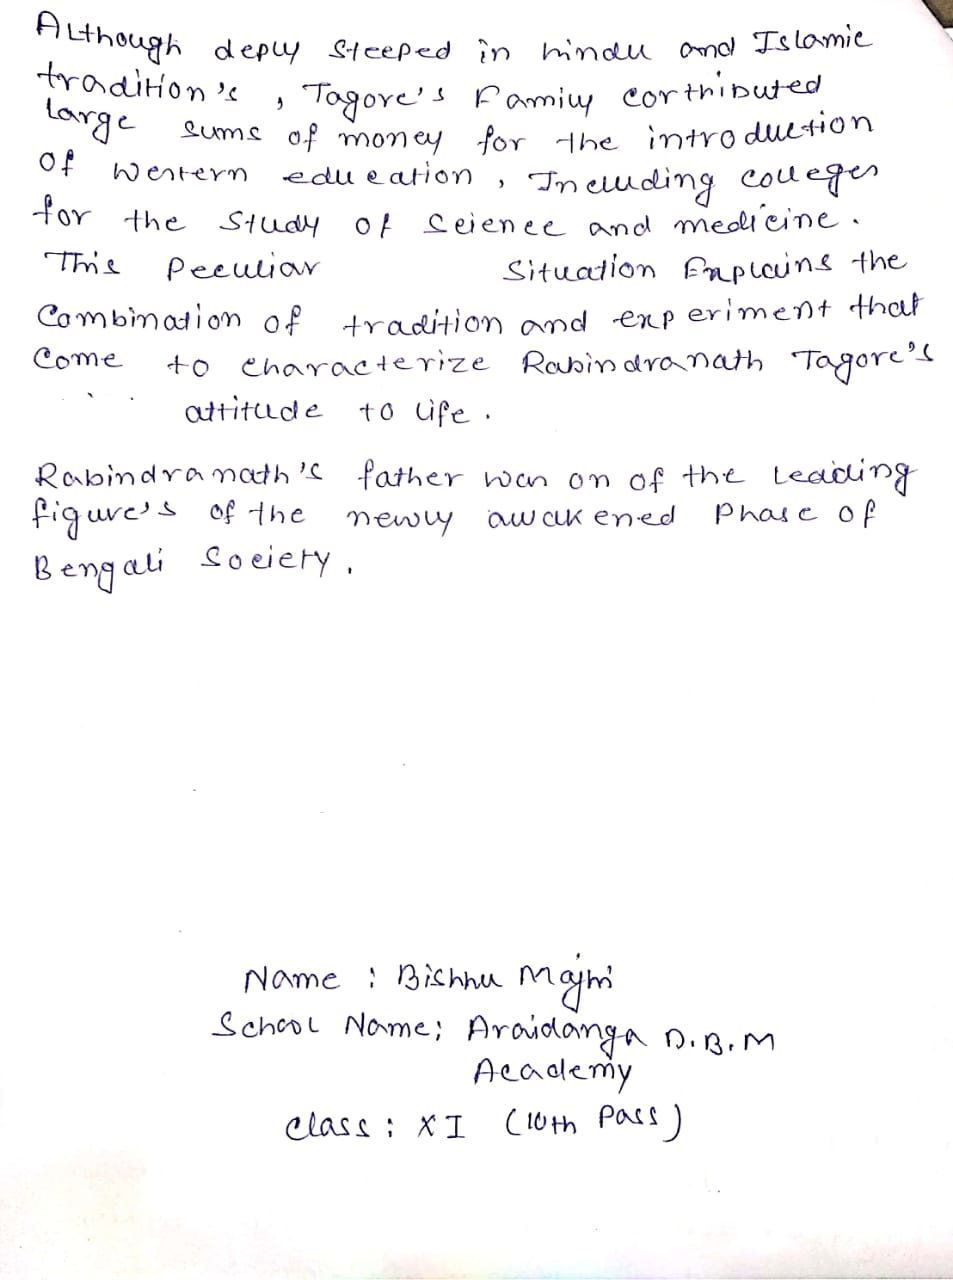 Although deply steeped in hindu and Islamic
tradition's, Tagore's Family corthibuted
large sums of money for the introduction
of western education, Including colleges
for the study of Science and medicine.
This Peculiar Situation Explains the
Combination of tradition and experiment that
Come to characterize Rabindranath Tagore's
attitude to life.
Rabindranath's father was on of the leading
figure's of the newly awakened Phase of
Bengali Society.
Name : Bishnu Majhi
School Name; Araidanga D.B.M
Academy
Class : XI (10th Pass)